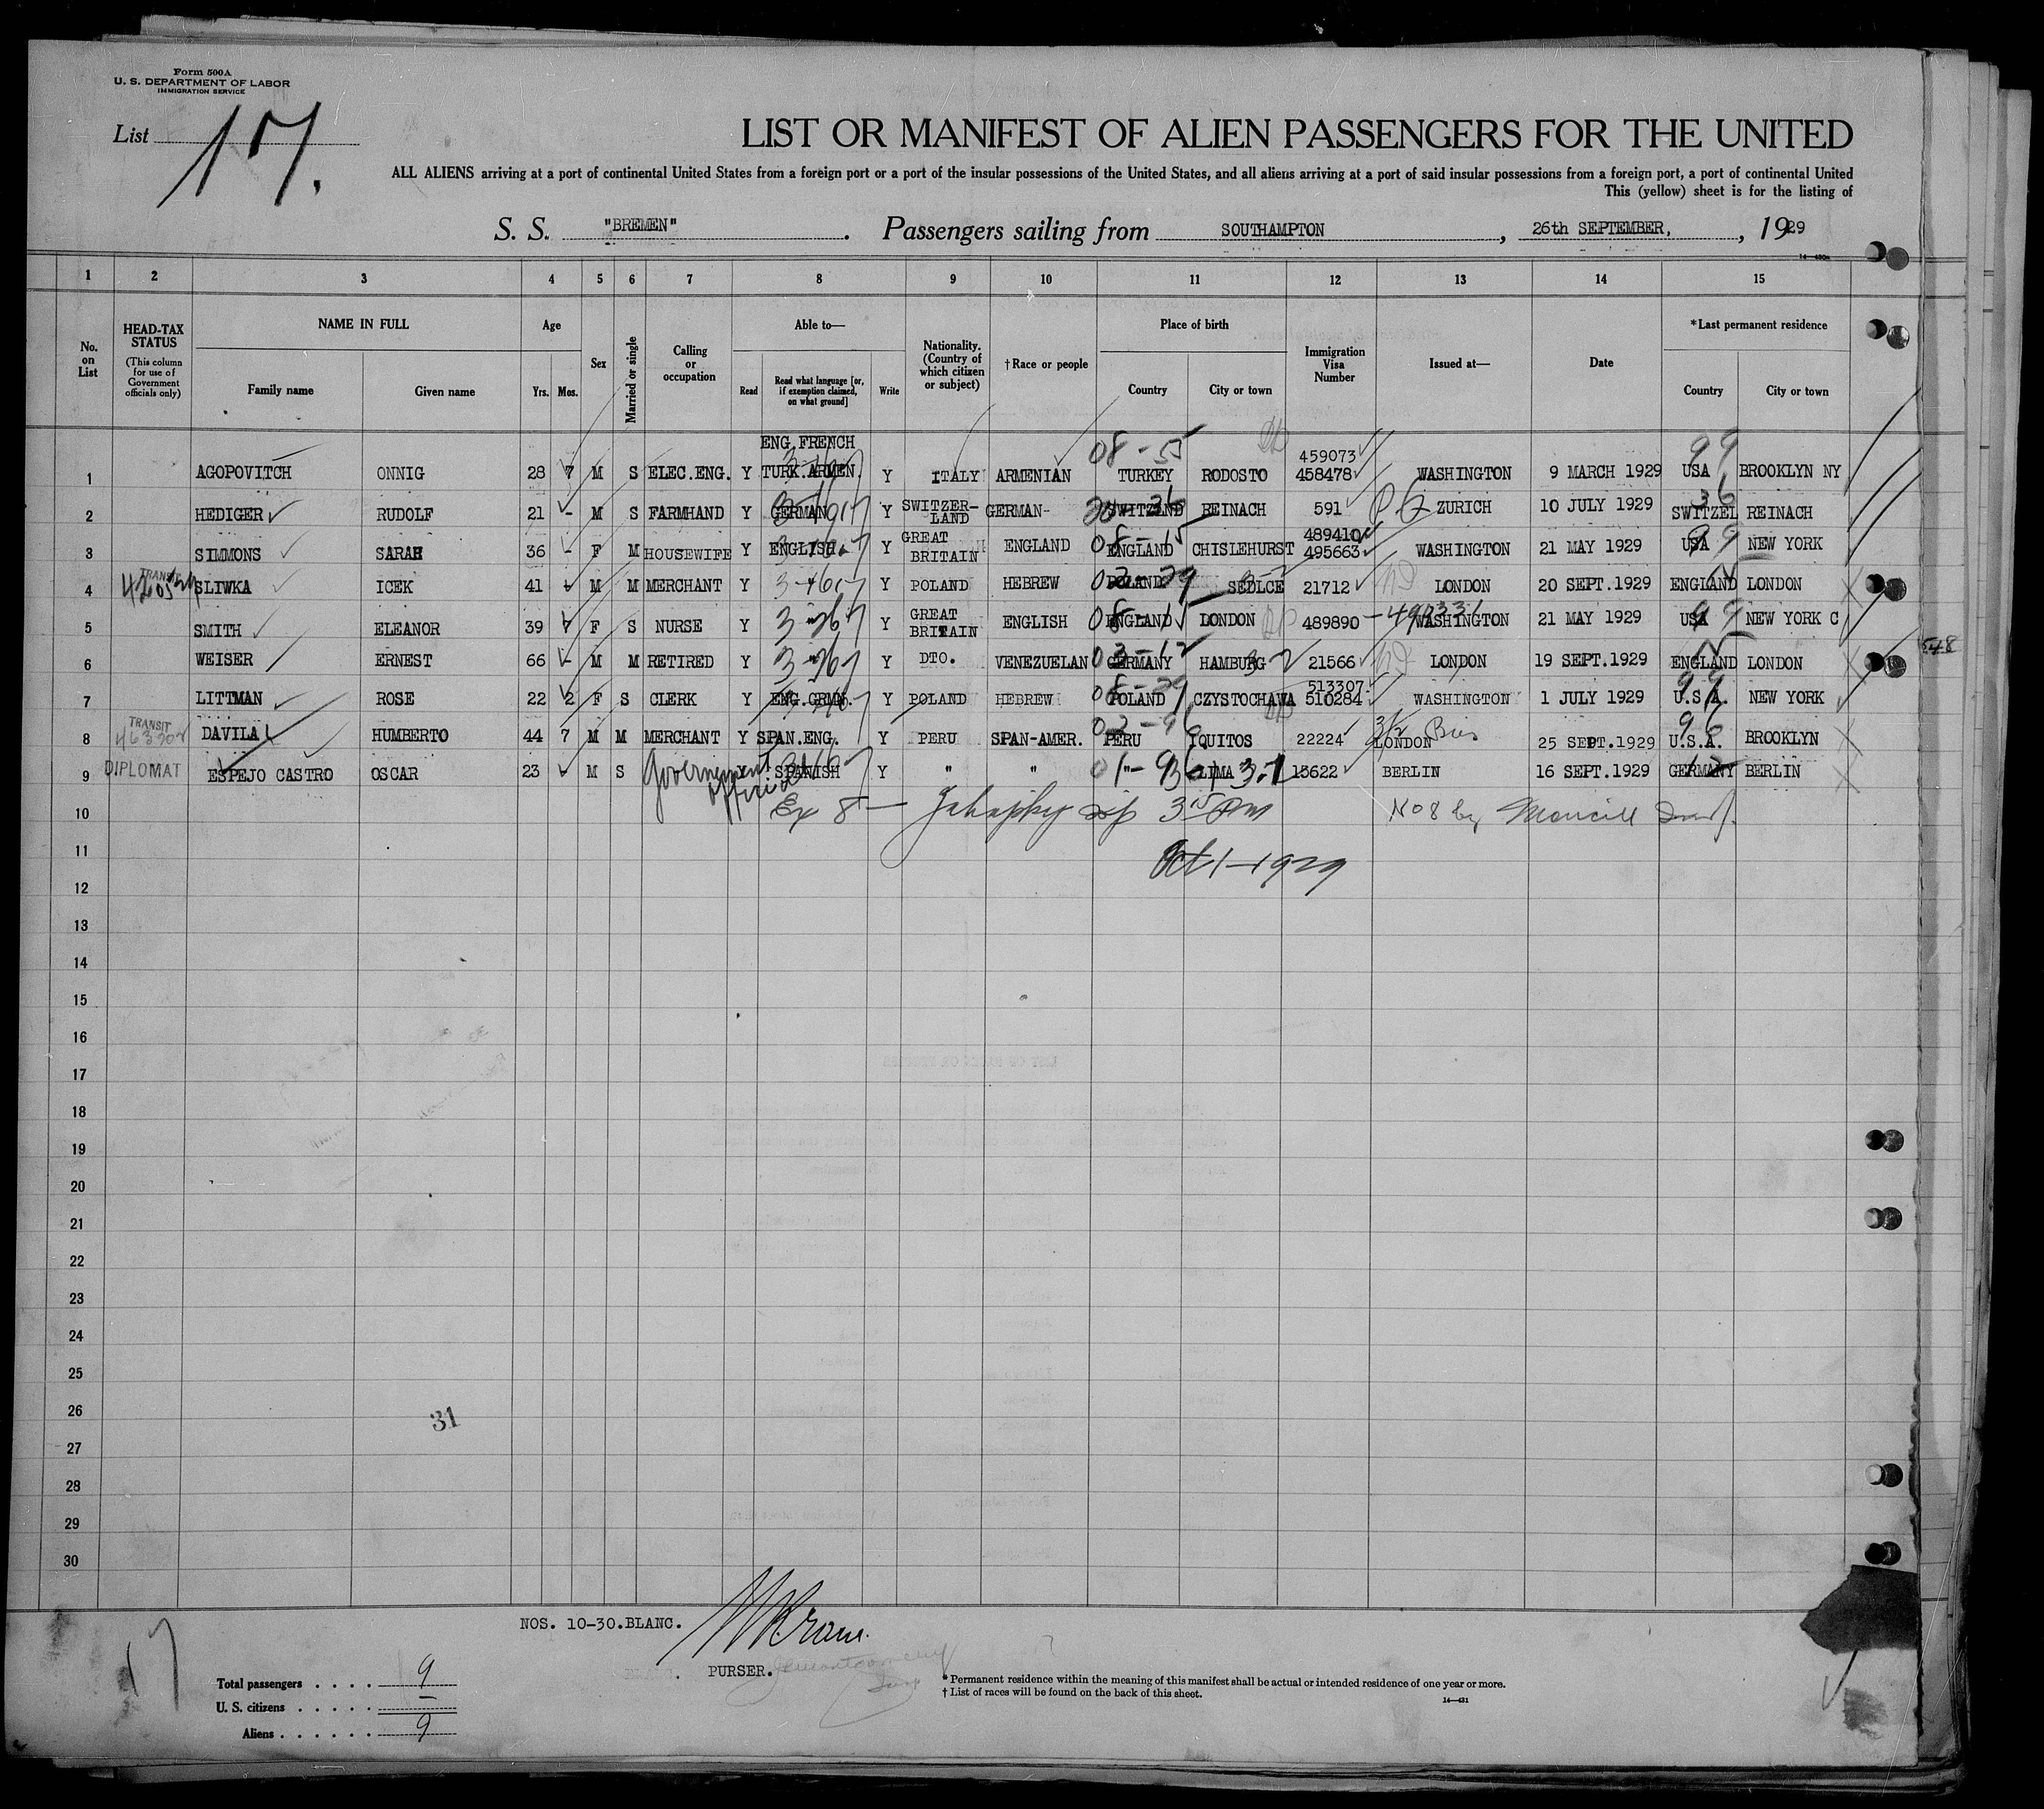 Form 500A
U. S. DEPARTMENT OF LABOR
IMMIGRATION SERVICE
List 17.
LIST OR MANIFEST OF ALIEN PASSENGERS FOR THE UNITED
ALL ALIENS arriving at a port of continental United States from a foreign port or a port of the insular possessions of the United States, and all aliens arriving at a port of said insular possessions from a foreign port, a port of continental United
This (yellow) sheet is for the listing of
S. S. "BREMEN". Passengers sailing from SOUTHAMPTON, 26th SEPTEMBER, , 1929
1 2 3 4 5 6 7 8 9 10 11 12 13 14 15
No. on List
HEAD-TAX STATUS
(This column for use of Government officials only)
NAME IN FULL
Family name Given name
Age
Yrs. Mos.
Sex
Married or single
Calling or occupation
Able to—
Read Read what language [or, if exemption claimed, on what ground] Write
Nationality. (Country of which citizen or subject)
† Race or people
Place of birth
Country City or town
Immigration Visa Number
Issued at—
Date
* Last permanent residence
Country City or town
ENG.FRENCH 08-55 459073 99
1 AGOPOVITCH ONNIG 28 7 M S ELEC.ENG. Y TURK.ARMEN. Y ITALY ARMENIAN TURKEY RODOSTO 458478 WASHINGTON 9 MARCH 1929 USA BROOKLYN NY
2 HEDIGER RUDOLF 21 - M S FARMHAND Y GERMAN Y SWITZER-LAND GERMAN- SWITZLND REINACH 591 ZURICH 10 JULY 1929 SWITZEL REINACH
489410
3 SIMMONS SARAH 36 - F M HOUSEWIFE Y ENGLISH. Y GREAT BRITAIN ENGLAND ENGLAND CHISLEHURST 495663 WASHINGTON 21 MAY 1929 USA NEW YORK
TRANSIT
4 SLIWKA ICEK 41 - M M MERCHANT Y Y POLAND HEBREW POLAND SEDLCE 21712 LONDON 20 SEPT.1929 ENGLAND LONDON
5 SMITH ELEANOR 39 7 F S NURSE Y Y GREAT BRITAIN ENGLISH ENGLAND LONDON 489890 - 490331 WASHINGTON 21 MAY 1929 USA NEW YORK C
6 WEISER ERNEST 66 - M M RETIRED Y Y DTO. VENEZUELAN GERMANY HAMBURG 21566 LONDON 19 SEPT.1929 ENGLAND LONDON
548
513307
7 LITTMAN ROSE 22 2 F S CLERK Y ENG.GRMN. Y POLAND HEBREW POLAND CZYSTOCHAWA 510284 WASHINGTON 1 JULY 1929 U.S.A. NEW YORK
TRANSIT
8 DAVILA HUMBERTO 44 7 M M MERCHANT Y SPAN.ENG. Y PERU SPAN-AMER. PERU IQUITOS 22224 LONDON 25 SEPT.1929 U.S.A. BROOKLYN
DIPLOMAT
9 ESPEJO CASTRO OSCAR 23 - M S Government official Y SPANISH Y " " " LIMA 13622 BERLIN 16 SEPT.1929 GERMANY BERLIN
10 Ex 8 — No 8 by
11 Oct 1-1929
12
13
14
15
16
17
18
19
20
21
22
23
24
25
26
31
27
28
29
30
NOS. 10-30.BLANC.
PURSER.
17
Total passengers . . . . 9
U. S. citizens . . . . . —
Aliens . . . . . . 9
* Permanent residence within the meaning of this manifest shall be actual or intended residence of one year or more.
† List of races will be found on the back of this sheet.
14—431